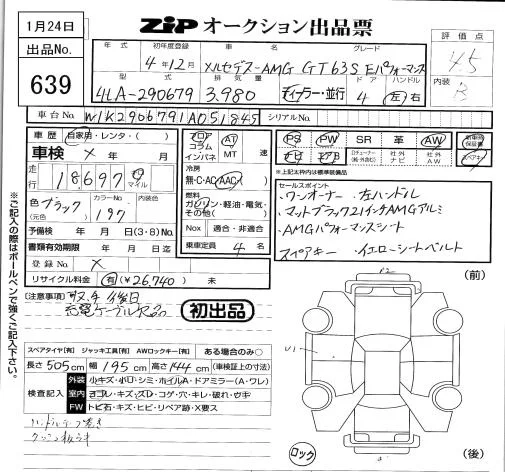 1月24日
出品No.
639
ZIP オークション出品票
年式
初年度登録
車名
グレード
4年12月
メルセデスーAMG GT63S Eパフォーマンス
型式
排気量
ドア
ハンドル
4LA-290679
3.980
ディーラー・並行
4
左 右
評価点
4.5
内装
B
車台No.
W1K2906791A051845
シリアルNo.
車歴
自家用・レンタ・( )
車検
× 年 月
走行
18,697
マイル
色
(元色)
ブラック
カラーNo.
197
内装色
予備検 年 月 日(3・8)No.
書類有効期限 年 月 日迄
登録No.
×
リサイクル料金 有(¥26,740) 未
フロア
コラム
インパネ
AT
MT
速
冷房
無・C・AC・AAC
燃料
ガソリン・軽油・電気・
その他( )
Nox
適合・非適合
乗車定員
4 名
PS
PW
SR
革
AW
ナビ
社外
ナビ
社外
AW
※上記太枠内は標準装備品
セールスポイント
・ワンオーナー ・左ハンドル
・マットブラック21インチAMGアルミ
・AMGパフォーマンスシート
スペアキー ・イエローシートベルト
[注意事項]
充電ケーブル欠品
初出品
スペアタイヤ[有] ジャッキ工具[有] AWロックキー[有] ある場合のみ○
長さ 505cm 幅 195cm 高さ 144cm (車検証上の寸法)
検査記入
外装
小キズ・小凹・シミ・ホイルA・ドアミラー(A・ワレ)
室内
ヨゴレ・キズ・スレ・コゲ・穴・キレ・破れ・ウキ
FW
トビ石・キズ・ヒビ・リペア跡・X要ス
(前)
(後)
ロック
※ご記入の際はボールペンで強くご記入下さい。